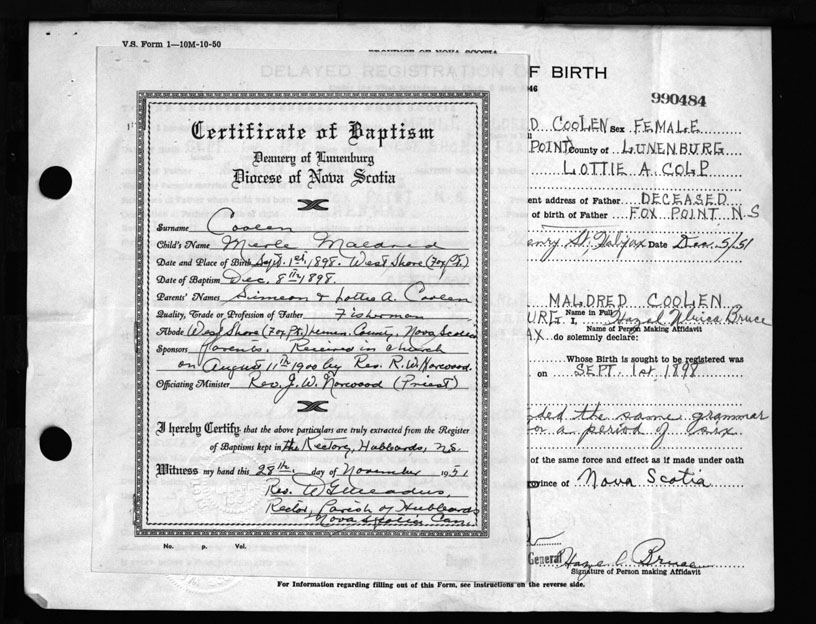 V.S. Form 1—10M-10-50
PROVINCE OF NOVA SCOTIA
DELAYED REGISTRATION OF BIRTH
990484
Certificate of Baptism
Deanery of Lunenburg
Diocese of Nova Scotia
Surname Coolen
Child's Name Merle Maldred
Date and Place of Birth Sept. 1st, 1898. West Shore (Fox Pt.)
Date of Baptism Dec. 8th, 1898.
Parents' Names Simeon & Lottie A. Coolen
Quality, Trade or Profession of Father Fisherman
Abode West Shore (Fox Pt.) County, Nova Scotia
Sponsors Parents. Received in Church
on August 11th 1900 by Rev. R.W. Norwood.
Officiating Minister Rev. J.W. Norwood (Priest)
I hereby Certify, that the above particulars are truly extracted from the Register
of Baptisms kept in the Rectory, Hubbards, N.S.
Witness my hand this 28th. day of November 1951
Rev.
Rector, Parish of Hubbards
Nova Scotia Can.
No. P. Vol.
D COOLEN Sex FEMALE
POINT County of LUNENBURG
LOTTIE A. COLP
ent address of Father DECEASED
of birth of Father FOX POINT N.S
Henry St, Halifax Date Dec. 5/51
MALDRED COOLEN
Name in Full
URG. I, Hazel Bruce
Name of Person Making Affidavit
AX. do solemnly declare:
Whose Birth is sought to be registered was
on SEPT. 1st, 1898
ded the same grammar
or a period of six
of the same force and effect as if made under oath
ovince of Nova Scotia
General Hazel Bruce
Signature of Person making Affidavit
For Information regarding filling out of this Form, see instructions on the reverse side.